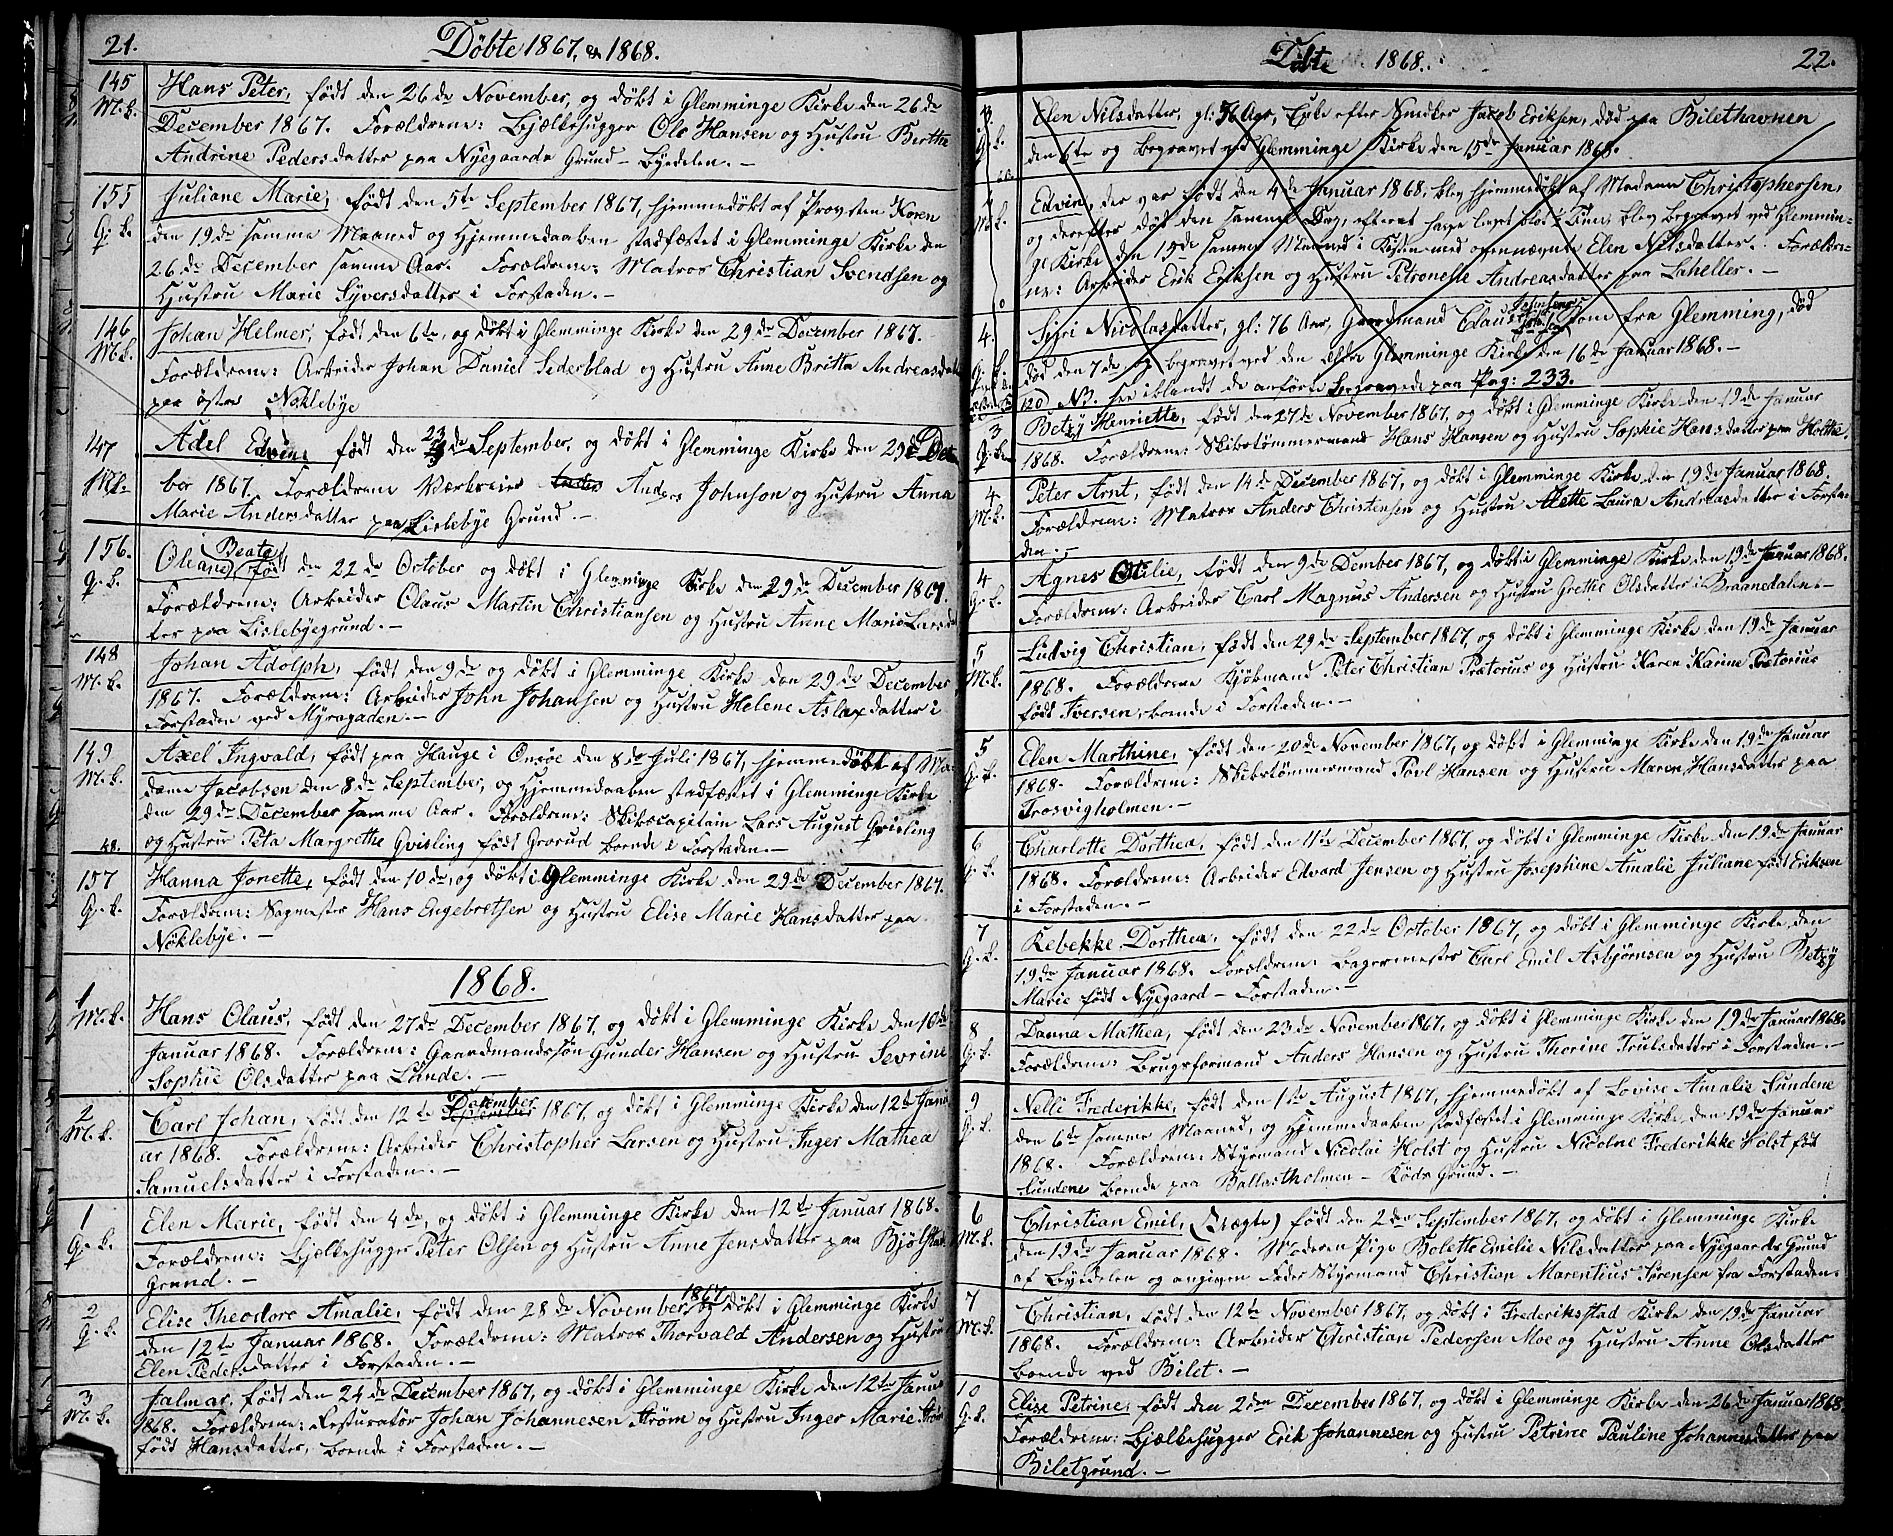 21.
Döbte 1867, & 1868.
145 Hans Peter, födt den 26de November, og döbt i Glemminge Kirke den 26de
M.k. December 1867. Forældrene: Bjælkehugger Ole Hansen og Hustru Birthe
Andrine Pedersdatter paa Nyegaards Grund - Byedelen. -
155 Juliane Marie, födt den 5te September 1867, hjemmedöbt af Provsten Koren
Q.k. den 19de samme Maaned og Hjemmedaaben stadfæstet i Glemminge Kirke den
26de December samme Aar. Forældrene: Matros Christian Svendsen og
Hustru Marie Syversdatter i Forstaden. -
146 Johan Helmer, födt den 6te, og döbt i Glemminge Kirke den 29de December 1867.
M.k. Forældrene: Arbeider Johan Daniel Sederblad og Hustru Anne Britta Andreasdatter
paa östre Noklebye
47 Adel Edvin födt den 23de September, og döbt i Glemminge Kirke den 29de Decem
M.k. ber 1867. Forældrene Værkseier Anders Johnson og Hustru Anna
Marie Andersdatter paa Lislebye Grund -
156. Oliane Beate, födt den 22de October og döbt i Glemminge Kirke den 29de December 1867.
Q.k. Forældrene: Arbeider Olaus Martin Christiansen og Hustru Anne Marie Larsdat
ter paa Lislebyegrund. -
148 Johan Adolph, födt den 9de og döbt i Glemminge Kirke den 29de December
M.k. 1867. Forældrene: Arbeider John Johansen og Hustru Helene Aslaxdatter i
Forstaden ved Myragaden. -
149 Axel Ingvald, födt paa Hauge i Onsöe den 8de Juli 1867, hjemmedöbt af Ma-
M.k. dame Jacobsen den 8de September, og Hjemmedaaben stadfæstet i Glemminge Kirke
den 29de December samme Aar. Forældrene: Skibscapitain Lars August Qvisling
og Hustru Peta Margrethe Qvisling födt Grorud boende i Forstaden. -
157 Hanna Jonette, födt den 10de, og döbt i Glemminge Kirke den 29de December 1867.
Q.k. Forældrene: Sagmester Hans Engebretsen og Hustru Elise Marie Hansdatter paa
Nöklebye. -
1868.
1 Hans Olaus, födt den 27de December 1867, og döbt i Glemminge Kirke den 10de
M.k. Januar 1868. Forældrene: Gaardmandssön Gunder Hansen og Hustru Sevrine
Sophie Olsdatter paa Lunde. -
2 Carl Johan, födt den 12te December 1867, og döbt i Glemminge Kirke den 12te Janu
M.k. ar 1868. Forældrene: Arbeider Christopher Larsen og Hustru Inger Mathea
Samuelsdatter i Forstaden. -
1 Elen Marie, födt den 4de, og döbt i Glemminge Kirke den 12te Januar 1868.
Q.k. Forældrene: Bjælkehugger Peter Olsen og Hustru Anne Jensdatter paa Bjölstad
Grund. -
2 Elise Theodore Amalie, födt den 28de November 1867 og döbt i Glemminge Kirke
Q.k. den 12te Januar 1868. Forældrene: Matros Thorvald Andersen og Hustru
Elen Pedersdatter i Forstaden. -
3 Jalmar, födt den 24de December 1867, og döbt i Glemminge Kirke den 12te Januar
M.k. 1868. Forældrene: Resturatör Johan Johannesen Ström og Hustru Inger Marie Ström
födt Hansdatter, boende i Forstaden. -
Döbte 1868.
22.
Elen Nilsdatter, gl: 76 Aar, Enke efter Snedker Jacob Eriksen, död paa Bilethavnen
den 6te og begravet ved Glemminge Kirke den 15de Januar 1868.
Edvin, der var födt den 4de Januar 1868, blev hjemmedöbt af Madam Christophersen,
og derefter död den samme Dag, efterat have levet blot Time, blev begravet ved Glemmin-
ge Kirke den 15de samme Maaned i Kiste med ovennævnte Elen Nilsdatter. Forældre-
ne: Arbeider Erik Eriksen og Hustru Petronelle Andreasdatter paa Laheller. -
4. Siri Nicolasdatter, gl: 76 Aar, Gaardmand Claus fra Glemming, död
död den 7de og begravet ved den ældre Glemminge Kirke den 16de Januar 1868. -
NB. see iblandt de anförte Begravede paa Pag: 233.
3 Betzy Henriette, födt den 27de November 1867, og döbt i Glemminge Kirke den 19de Januar
Q.k. 1868. Forældrene: Skibstömmermand Hans Hansen og Hustru Sophie Hansdatter paa Holthe.
4 Peter Arnt, födt den 14de December 1867, og döbt i Glemminge Kirke den 19de Januar 1868.
M.k. Forældrene: Matros Anders Christensen og Hustru Alette Laura Andreasdatter i Forsta-
den. -
4 Agnes Otilie, födt den 9de December 1867, og döbt i Glemminge Kirke den 19de Januar 1868.
Q.k. Forældrene: Arbeider Carl Magnus Andersen og Hustru Grethe Olsdatter i Braanedalen. -
5 Ludvig Christian, födt den 29de September 1867, og döbt i Glemminge Kirke den 19de Januar
M.k. 1868. Forældrene Kjöbmand Peter Christian Prætorius og Hustru Karen Karine Prætorius
födt Iversen, boende i Forstaden. -
5 Elen Marthine, födt den 20de November 1867, og döbt i Glemminge Kirke den 19de Januar
Q.k. 1868. Forældrene: Skibstömmermand Povl Hansen og Hustru Maren Hansdatter paa
Trosvigholmen. -
6 Charlotte Dorthea, födt den 11te December 1867, og döbt i Glemminge Kirke den 19de Januar
Q.k. 1868. Forældrene: Arbeider Edvard Jensen og Hustru Josephine Amalie Juliane födt Eriksen
i Forstaden. -
7 Rebekke Dorthea, födt den 22de October 1867, og döbt i Glemminge Kirke den
Q.k. 19de Januar 1868. Forældrene: Bagermester Carl Emil Asbjörnsen og Hustru Betzy
Marie födt Nyegaard - Forstaden. -
8 Danna Mathea, födt den 23de November 1867, og döbt i Glemminge Kirke den 19de Januar 1868.
Q.k. Forældrene: Brugsformand Anders Hansen og Hustru Thorine Trulsdatter i Forstaden. -
9 Nelli Frederikke, födt den 1ste August 1867, hjemmedöbt af Lovise Amalie Lundene
Q.k. den 6te samme Maaned, og Hjemmedaaben stadfæstet i Glemminge Kirke den 19de Januar
1868. Forældrene: Styrmand Nicolai Holst og Hustru Nicoline Frederikke Holst födt
Lundene boende paa Ballastholmen - Röds Grund. -
6 Christian Emil, (Uægte) födt den 2den September 1867, og döbt i Glemminge Kirke
M.k. den 19de Januar 1868. Moderen Pige Bolette Emilie Nilsdatter paa Nyegaards Grund
af Byedelen og angiven Fader Styrmand Christian Marentius Sörensen fra Forstaden.
7 Christian, födt den 12te November 1867, og döbt i Frederiksstad Kirke den 19de Januar
M.k. 1868. Forældrene: Arbeider Christian Pedersen Moe og Hustru Anne Olsdatter
boende ved Bilet. -
10 Elise Petrine, födt den 2den December 1867, og döbt i Glemminge Kirke den 26de Januar 1868.
Q.k. Forældrene: Bjælkehugger Erik Johannesen og Hustru Petrine Pauline Johannesdatter paa
Biletgrund. -